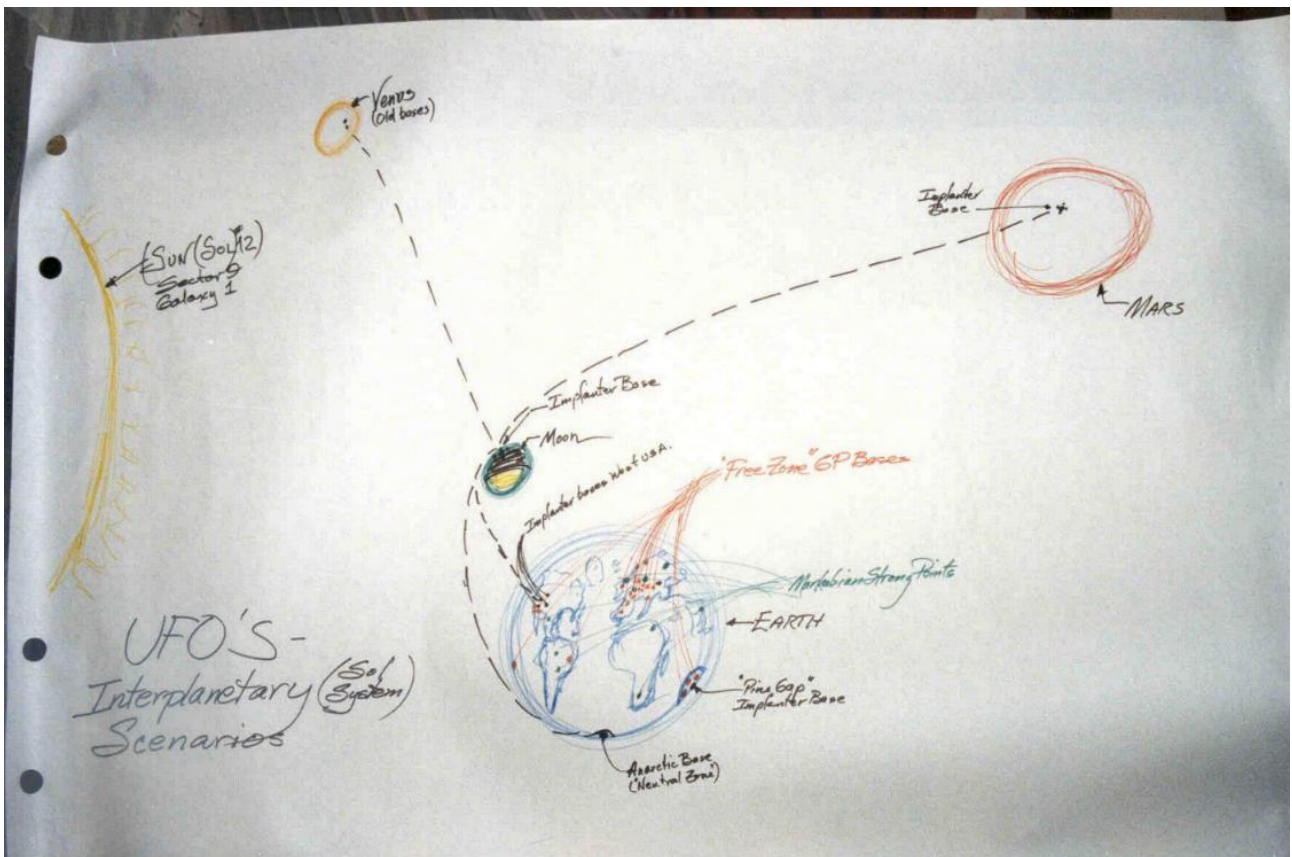 Venus
(Old bases)
SUN (SOL 12)
Sector 9
Galaxy 1
Implanter
Base
MARS
Implanter Base
Moon
Implanter bases West USA.
"Free Zone" GP Bases
Markabian Strong Points
EARTH
"Pine Gap"
Implanter Base
Anarctic Base
("Neutral Zone")
UFO'S -
Interplanetary (Sol System)
Scenarios